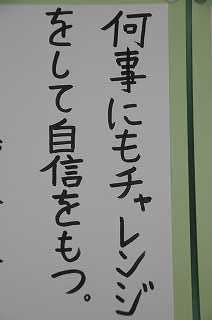 何事にもチャレンジ
をして自信をもつ。